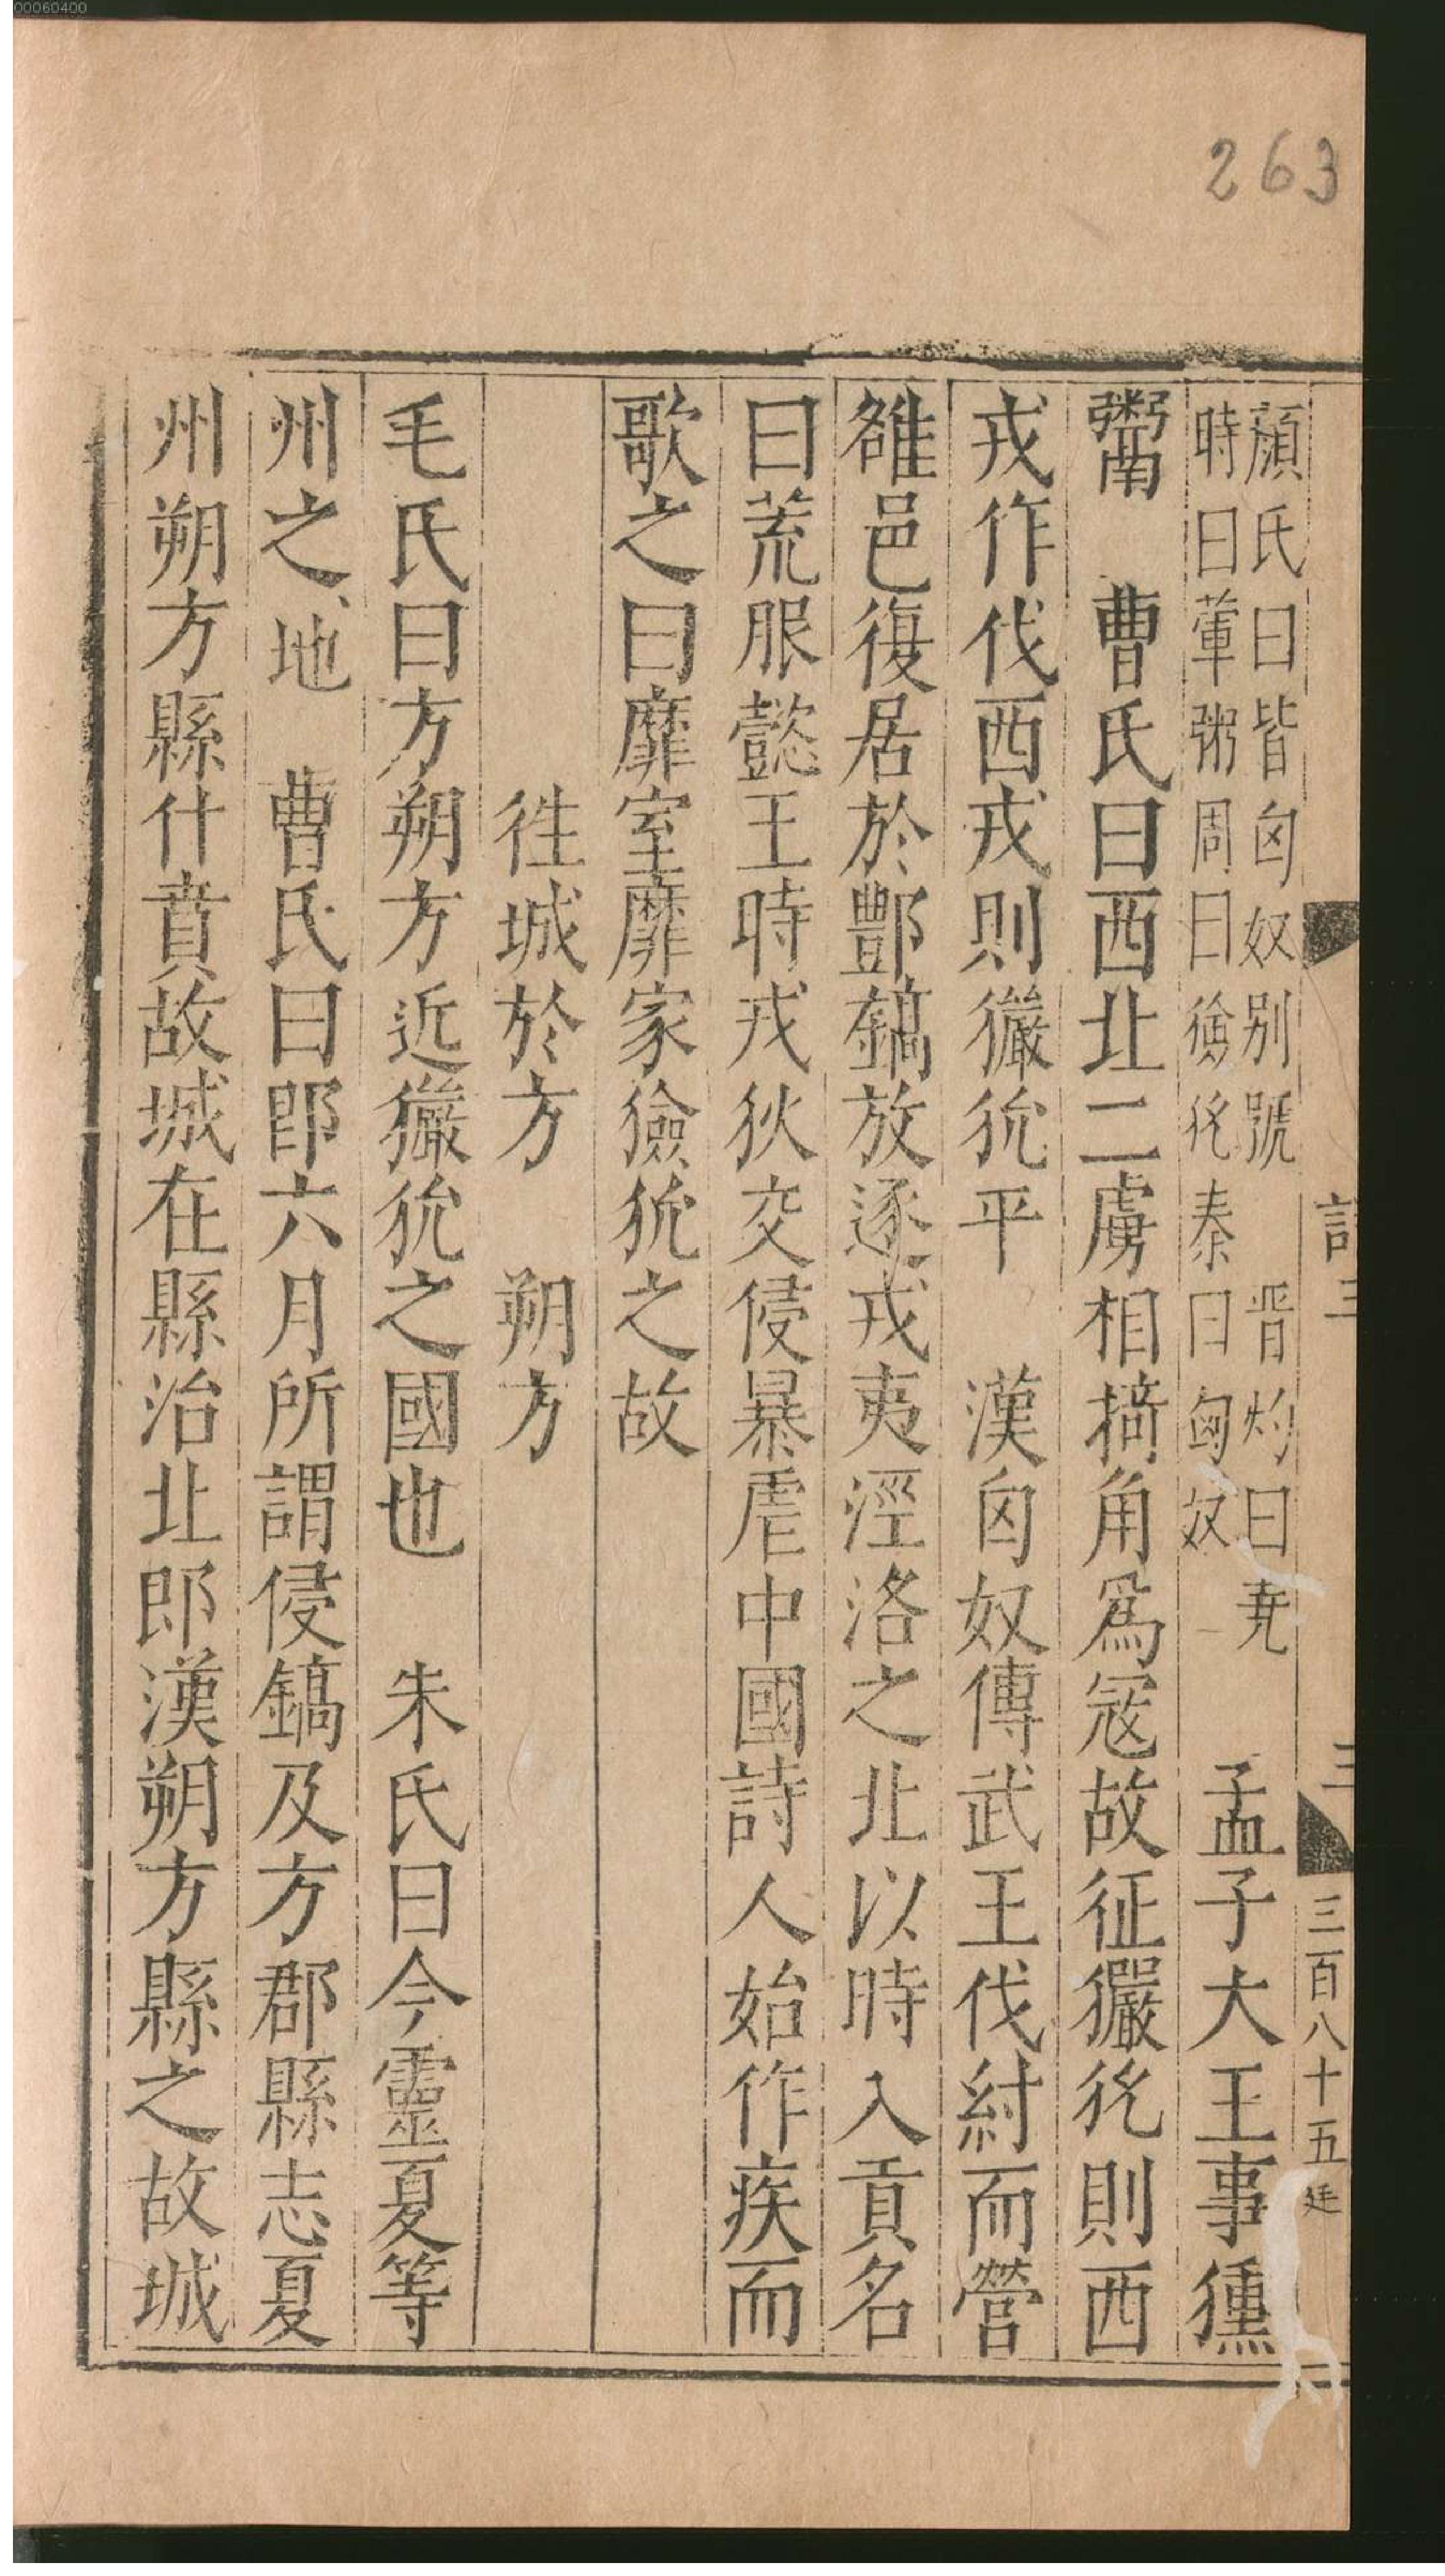 00060400
263
三百八十五廷
顔氏曰皆匈奴别號　晋灼曰堯
時曰葷粥周曰獫狁秦曰匈奴　孟子大王事獯
鬻　曹氏曰西北二虜相掎角爲寇故征玁狁則西
戎作伐西戎則玁狁平　漢匈奴傳武王伐紂而營
雒邑復居於酆鎬放逐戎夷涇洛之北以時入貢名
曰荒服懿王時戎狄交侵暴虐中國詩人始作疾而
歌之曰靡室靡家獫狁之故
徃城於方　朔方
毛氏曰方朔方近玁狁之國也　朱氏曰今靈夏等
州之地　曹氏曰即六月所謂侵鎬及方郡縣志夏
州朔方縣什賁故城在縣治北即漢朔方縣之故城